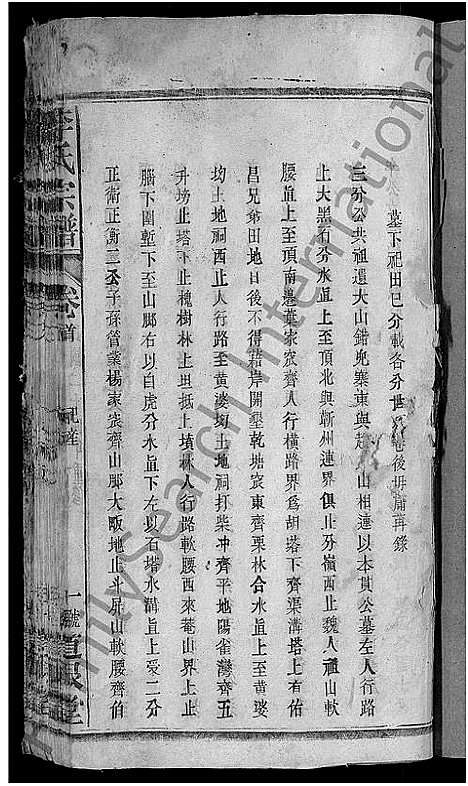 墓下祀田已分載各分世 卷後毋庸再錄
三分公共祖遺大山錯兒寨東與趙 山相連以本貫公墓左人行路
止大黑石分水直上至頂北與蘄州連界俱止分嶺西止魏人祖山軟
腰直上至頂南邊葉家宸齊人行橫路界爲胡塔下齊渠溝塔上有佑
昌兄弟田地日後不得藉岸開墾乾塘宸東齊栗林合水直上至黃婆
坳土地祠西止人行路至黃婆坳土地祠打柴冲齊平地陽雀灣齊五
升塝止塔下止槐樹林上坦抵上墳林人行路軟腰西來菴山界上止
腦下圍塹下至山脚右以白虎分水直下左以石塔水溝直上受二分
正衛正衡二公子孫管業楊家宸齊山脚大畈地止斗 山軟腰齊伯
李氏宗譜
卷 首
祀產
一號
道 堂
FamilySearch International